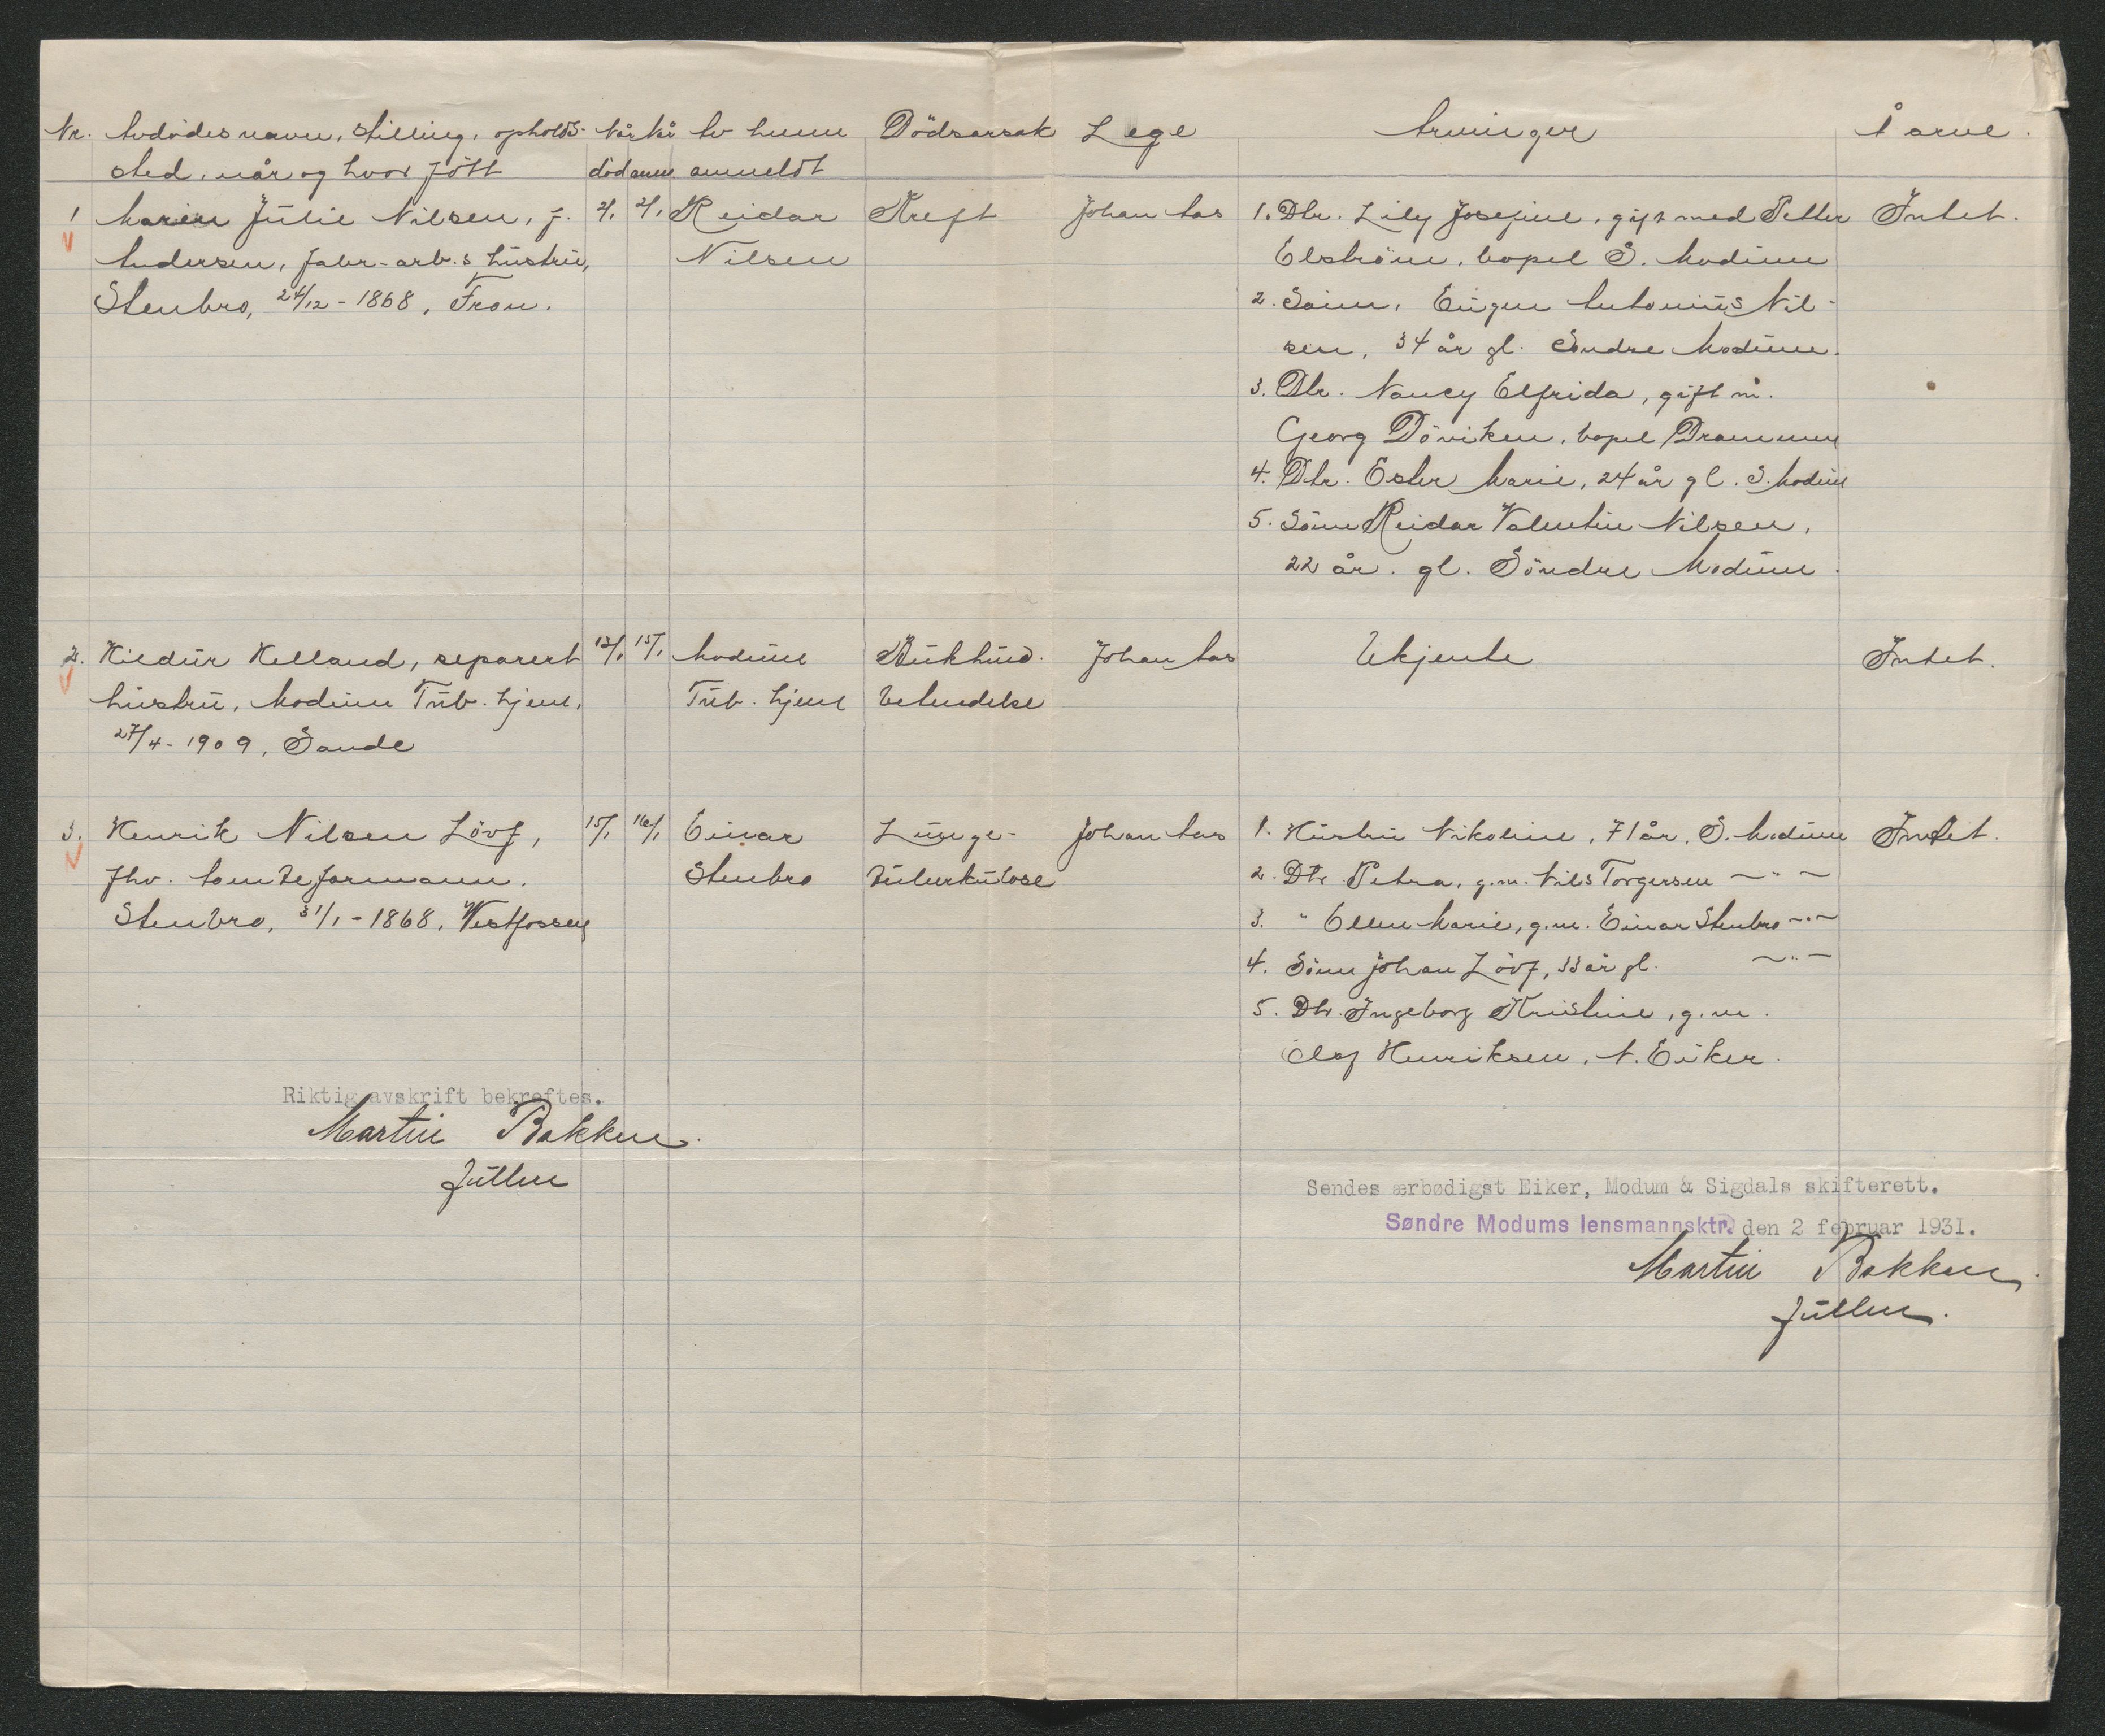 Nr. Avdødes navn, stilling, opholds- Når Når Av hvem Dödsårsak Lege Arvinger Å arve.
sted, når og hvor født död anm. anmeldt
1 Maren Julie Nilsen, f. 2/1 2/1 Reidar Kreft Johan Aas 1. Dtr. Lily Josefine, gift med Petter Intet.
Andersen, fabr-arb.s hustru, Nilsen Elström, bopel S. Modum
Stenbro, 24/12-1868, Fron. 2. Sönn, Eugen Antonius Nil-
sen, 34 år gl. Söndre Modum.
3. Dtr. Nancy Elfrida, gift m.
Georg Döviken, bopel Drammen
4. Dtr. Ester Marie, 24 år gl. S. Modum
5. Sönn Reidar Valentin Nilsen,
22 år. gl. Söndre Modum.
2. Hildur Helland, separert 13/1 15/1 Modum Bukhind- Johan Aas Ukjente Intet.
hustru, Modum Tub. hjem, Tub. hjem betendelse
27/4-1909, Sande
3. Henrik Nilsen Lövf, 15/1 16/1 Einar Lunge- Johan Aas 1. Hustru Nikoline, 71 år, S. Modum Intet.
fhv. tomteformann. Stenbro tuberkulose 2. Dtr. Petra, g.m. Nils Torgersen — " —
Stenbro, 31/1-1868, Vestfossen 3. " Ellen Marie, g.m. Einar Stenbro — " —
4. Sönn Johan Lövf, 33 år gl. — " —
5. Dtr. Ingeborg Kristine, g.m.
Olaf Henriksen, N. Eiker.
Riktig avskrift bekreftes.
Martin Bakken.
fullm
Sendes ærbødigst Eiker, Modum & Sigdals skifterett.
Søndre Modums lensmannsktr. den 2 februar 1931.
Martin Bakken.
fullm.